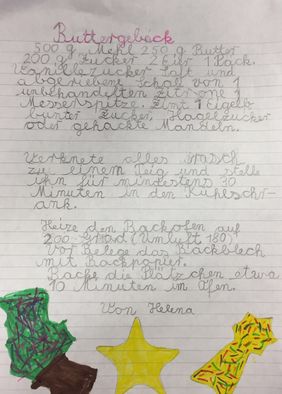 Buttergebäck
500 g Mehl 250 g Butter
200 g Zucker 2 Eier 1 Päck.
Vanillezucker Saft und
abgeriebene Schale von 1
unbehandelten Zitrone 1
Messerspitze Zimt 1 Eigelb
bunter Zucker, Hagelzucker
oder gehackte Mandeln.
Verknete alles rasch
zu einem Teig und stelle
ihn für mindestens 30
Minuten in den Kühlschr-
ank.
Heize den Backofen auf
200 Grad (Umluft 180)
vor Belege das Backblech
mit Backpapier.
Backe die Plätzchen etwa
10 Minuten im Ofen.
Von Helena